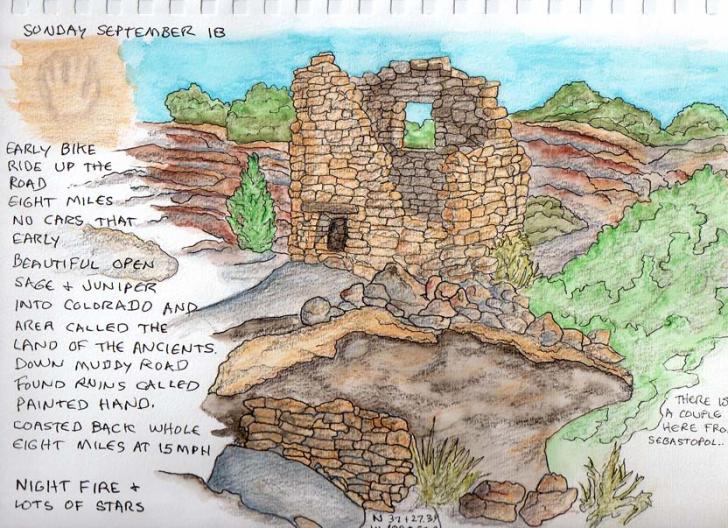 SUNDAY SEPTEMBER 18
EARLY BIKE
RIDE UP THE
ROAD
EIGHT MILES
NO CARS THAT
EARLY
BEAUTIFUL OPEN
SAGE + JUNIPER
INTO COLORADO AND
AREA CALLED THE
LAND OF THE ANCIENTS.
DOWN MUDDY ROAD
FOUND RUINS CALLED
PAINTED HAND.
COASTED BACK WHOLE
EIGHT MILES AT 15 MPH
NIGHT FIRE +
LOTS OF STARS
THERE
A COUPLE
HERE
SEBASTOPOL..